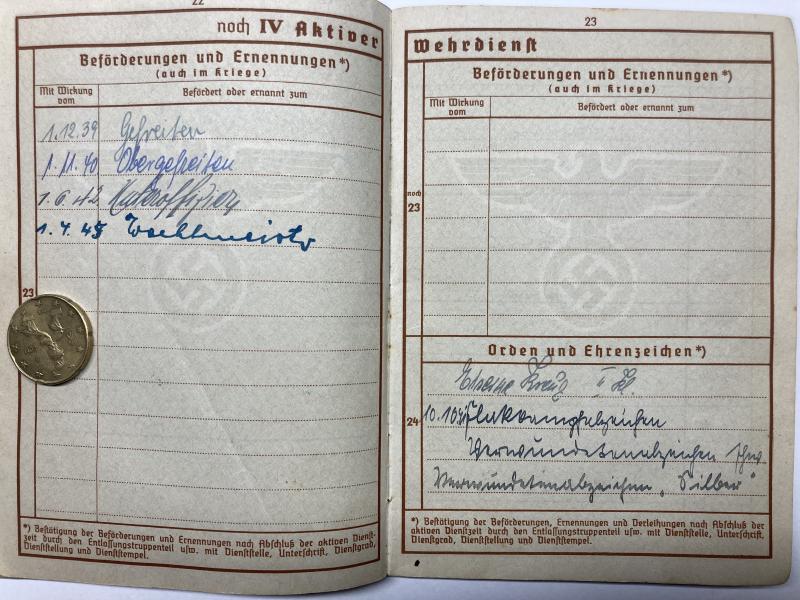 22
noch IV Aktiver
Beförderungen und Ernennungen*)
(auch im Kriege)
Mit Wirkung vom
Befördert oder ernannt zum
1.12.39 Gefreiten
1.11.40 Obergefreiten
1.6.42 Unteroffizier
1.4.45 Wachtmeister
23
*) Bestätigung der Beförderungen und Ernennungen nach Abschluß der aktiven Dienst-
zeit durch den Entlassungstruppenteil usw. mit Dienststelle, Unterschrift, Dienstgrad,
Dienststellung und Dienststempel.
23
Wehrdienst
Beförderungen und Ernennungen*)
(auch im Kriege)
Mit Wirkung vom
Befördert oder ernannt zum
noch
23
Orden und Ehrenzeichen*)
Eiserne Kreuz II Kl.
24
Flakkampfabzeichen
Verwundetenabzeichen schw.
Verwundetenabzeichen „Silber"
*) Bestätigung der Beförderungen, Ernennungen und Verleihungen nach Abschluß der
aktiven Dienstzeit durch den Entlassungstruppenteil usw. mit Dienststelle, Unterschrift,
Dienstgrad, Dienststellung und Dienststempel.